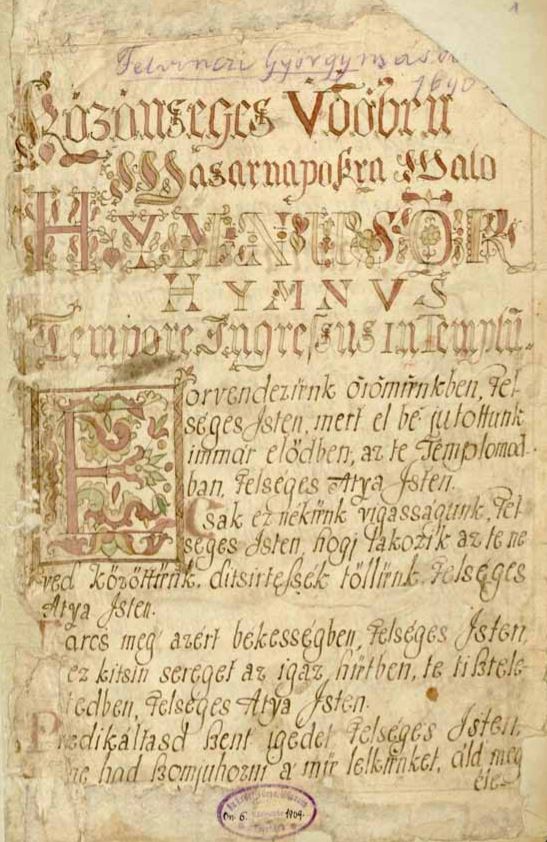 1
Felvinczi György
1690
Közönseges Üdöben
Wasarnapokra Walo
HYMNUSOK
HYMNUS
Tempore Ingressus in Templū.
Eörvendezünk örömünkben, Fel-
séges Isten, mert el bé jutottunk
immár elödben, az te Templomod-
ban, Felséges Atya Isten.
Csak ez nékünk vigasságunk, Fel-
séges Isten, hogj lakozik az te ne
ved közöttünk. ditsirtessék töllünk Felséges
Atya Isten.
Tarcs meg azért bekességben, Felséges Isten,
ez kitsin sereget az igaz hütben, te tißtele
tedben, Felséges Atya Isten.
Predikáltasd ßent igedet Felséges Isten,
ne had ßomjuhozni a mü lelkünket, áld meg
éle-
1904.